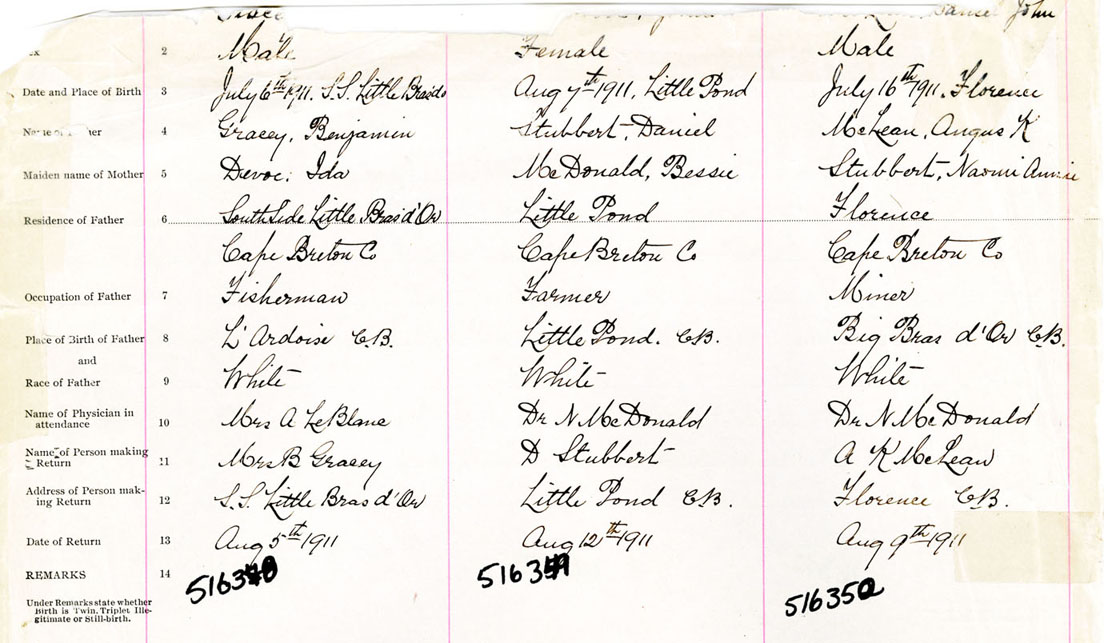 Daniel John
2 Male Female Male
Date and Place of Birth 3 July 6th 1911. S.S. Little Bras do Aug 7th 1911, Little Pond July 16th 1911. Florence
4 Gracey, Benjamin Stubbert, Daniel McLean, Angus K
Maiden name of Mother 5 Devoe, Ida McDonald, Bessie Stubbert, Naomi Annie
Residence of Father 6 South Side Little Bras d'Or Little Pond Florence
Cape Breton Co Cape Breton Co Cape Breton Co
Occupation of Father 7 Fisherman Farmer Miner
Place of Birth of Father 8 L'Ardoise C.B. Little Pond. C.B. Big Bras d'Or C.B.
and
Race of Father 9 White White White
Name of Physician in
attendance 10 Mrs A LeBlanc Dr N McDonald Dr N McDonald
Name of Person making
Return 11 Mrs B Gracey D Stubbert A K McLean
Address of Person mak-
ing Return 12 S.S. Little Bras d'Or Little Pond C.B. Florence C.B.
Date of Return 13 Aug 5th 1911 Aug 12th 1911 Aug 9th 1911
REMARKS 14 516350
Under Remarks state whether
Birth is Twin, Triplet Ille-
gitimate or Still-birth.